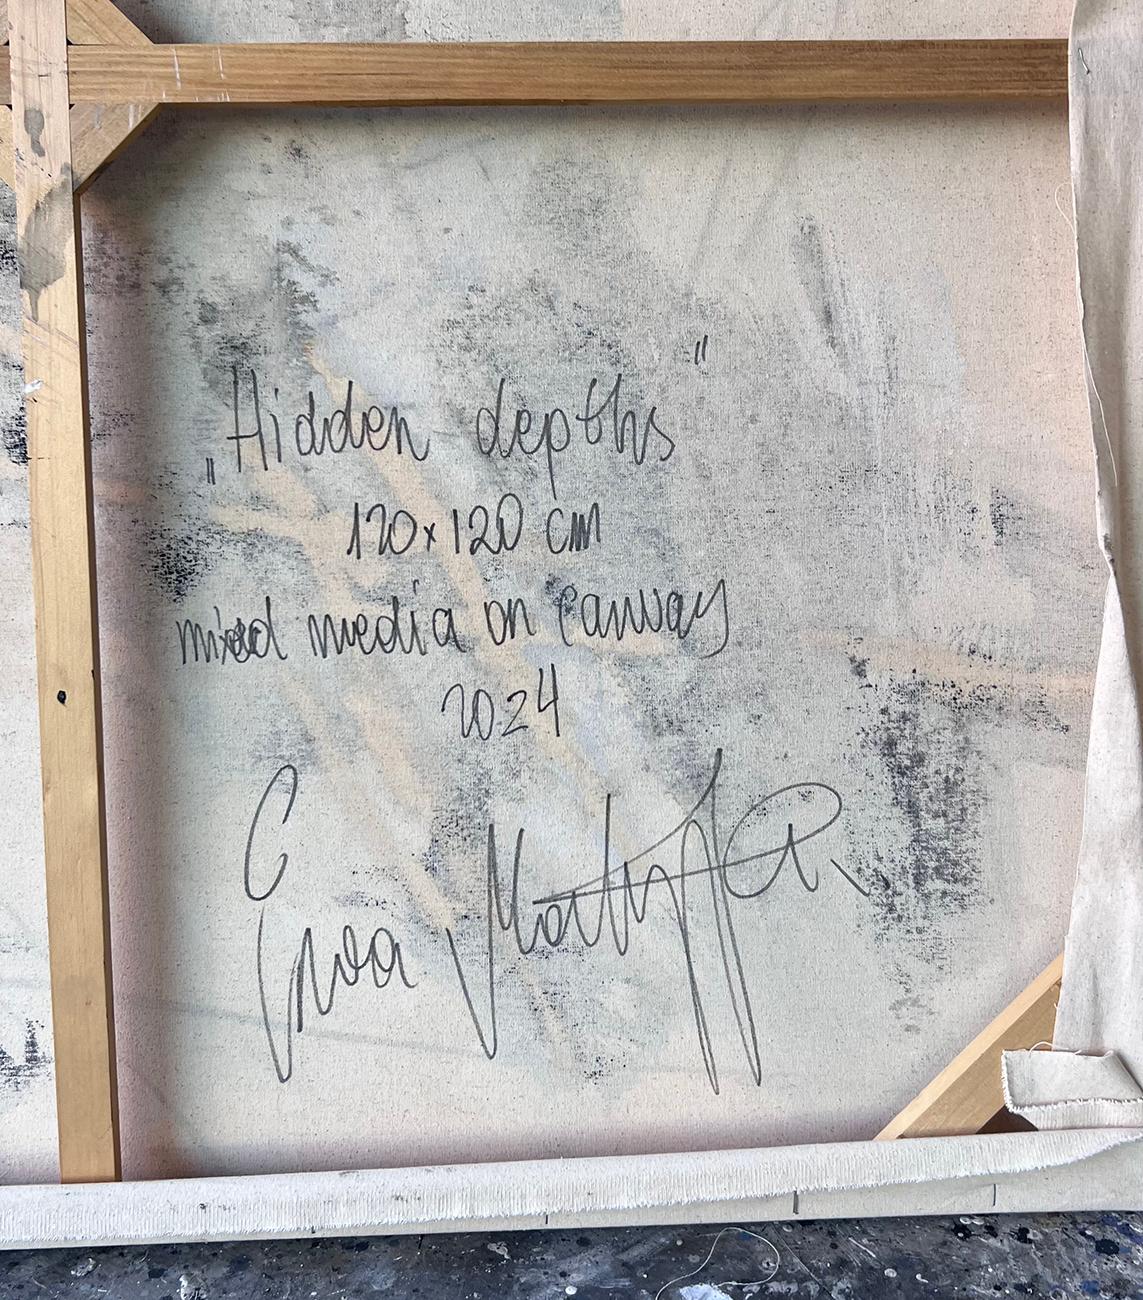 „Hidden depths"
120x120 cm
mixed media on canvas
2024
Ewa Matyja